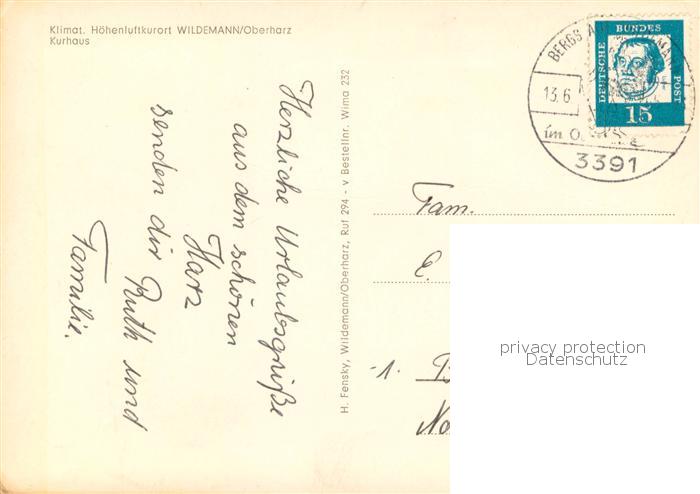 Klimat. Höhenluftkurort WILDEMANN/Oberharz
Kurhaus
Herzliche Urlaubsgrüße
aus dem schönen
Harz
senden dir Ruth und
Familie.
H. Fensky, Wildemann/Oberharz, Ruf 294 - v Bestellnr. Wima 232
BERGS
13.6
im O
3391
DEUTSCHE BUNDES POST
15
Fam.
E.
-1.
privacy protection
Datenschutz